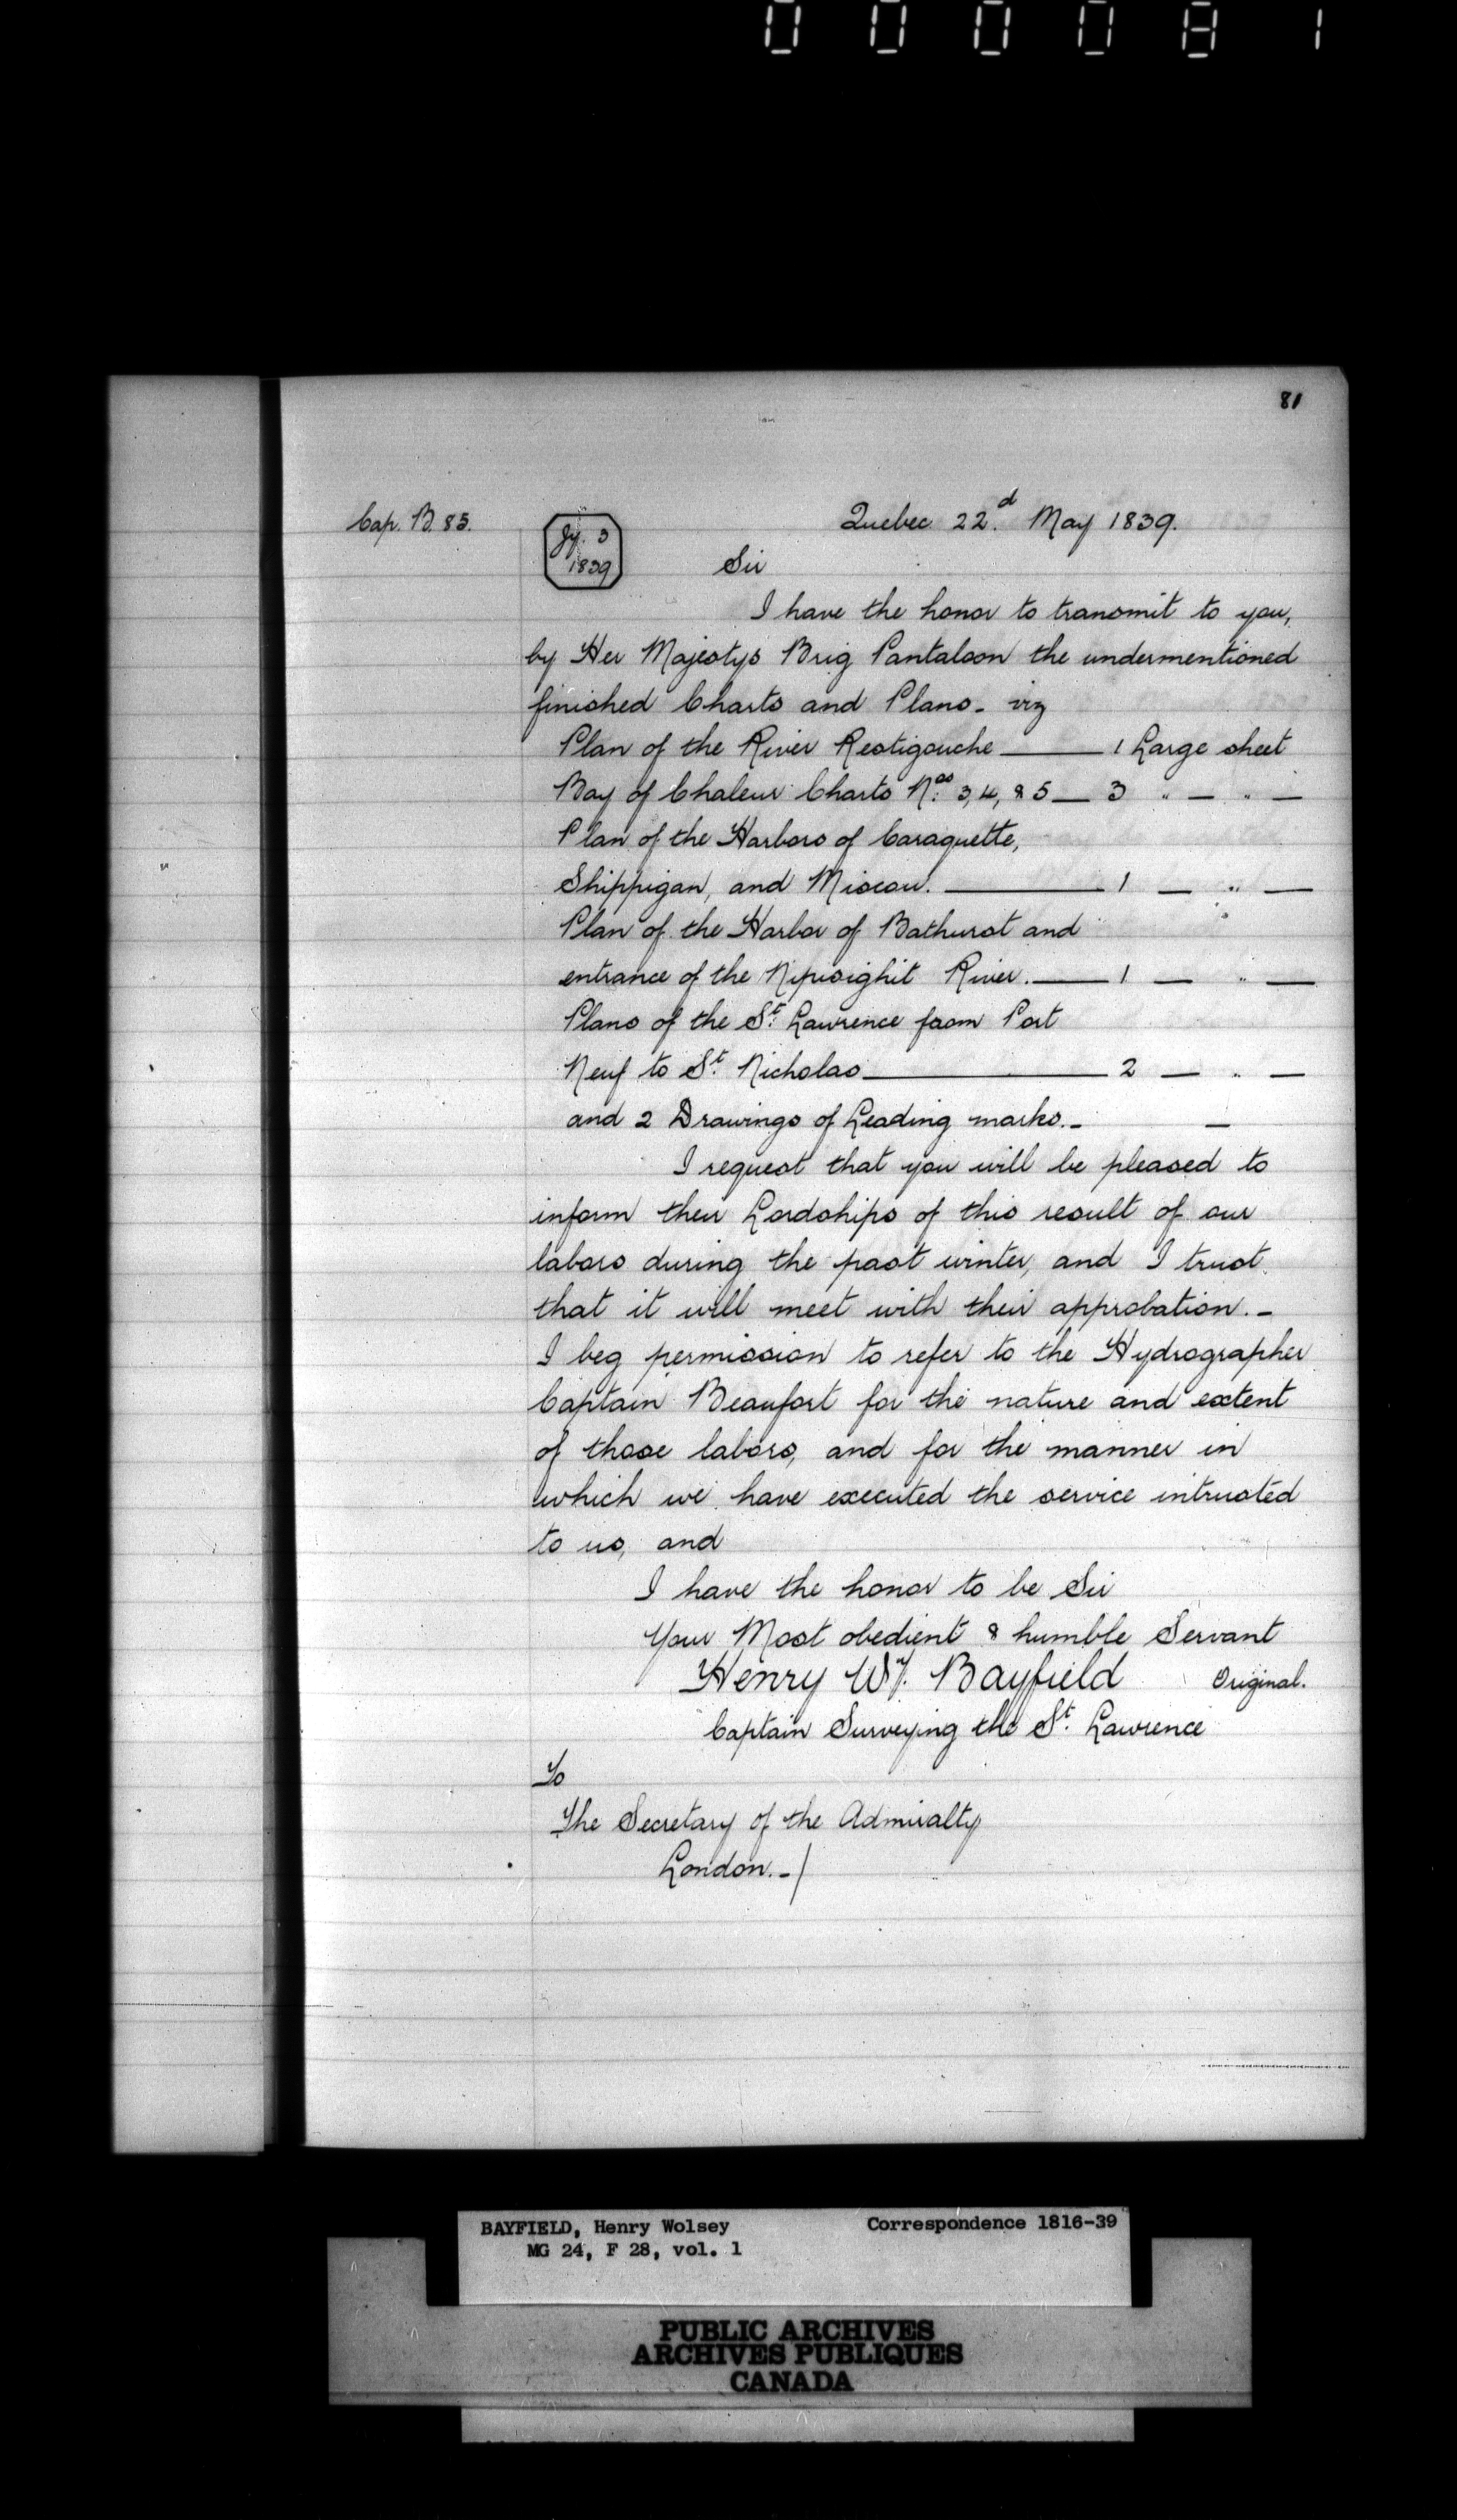 000081
81
Cap. B. 85.
Quebec 22.d May 1839.
Jy. 3
1839
Sir
I have the honor to transmit to you,
by Her Majestys Brig Pantaloon the undermentioned
finished Charts and Plans - viz
Plan of the River Restigouche —— 1 Large sheet
Bay of Chaleur Charts Nos. 3, 4, & 5 — 3 " — " —
Plan of the Harbors of Caraquette,
Shippigan, and Miscou. —— 1 — " —
Plan of the Harbor of Bathurst and
entrance of the Nipisighit River. —— 1 — " —
Plans of the St. Lawrence from Port
Neuf to St. Nicholas —— 2 — " —
and 2 Drawings of Leading marks. - —
I request that you will be pleased to
inform their Lordships of this result of our
labors during the past winter, and I trust
that it will meet with their approbation. -
I beg permission to refer to the Hydrographer
Captain Beaufort for the nature and extent
of those labors, and for the manner in
which we have executed the service intrusted
to us, and
I have the honor to be Sir
Your Most obedient & humble Servant
Henry Wy. Bayfield Original.
Captain Surveying the St. Lawrence
To
The Secretary of the Admiralty
London. - /
BAYFIELD, Henry Wolsey Correspondence 1816-39
MG 24, F 28, vol. 1
PUBLIC ARCHIVES
ARCHIVES PUBLIQUES
CANADA